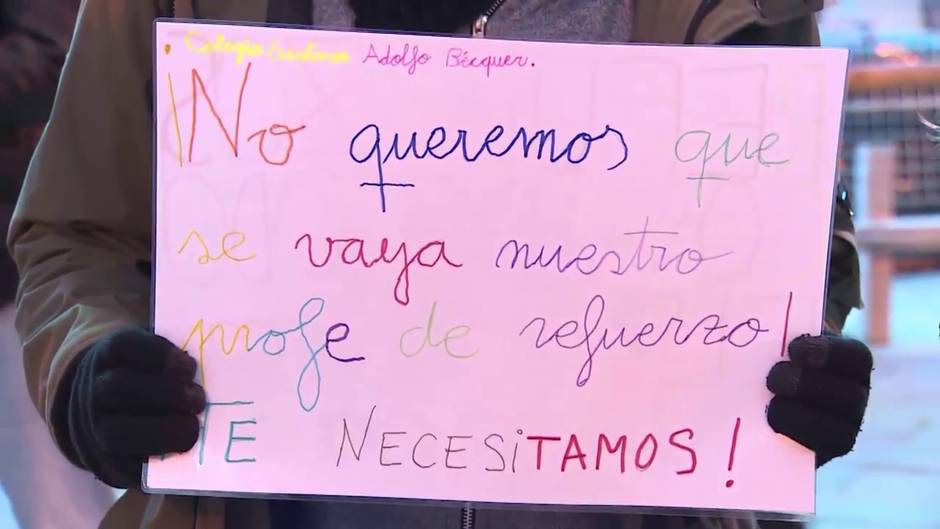 Colegio Gustavo Adolfo Bécquer.
¡No queremos que
se vaya nuestro
profe de refuerzo!
¡TE NECESiTAMOS!